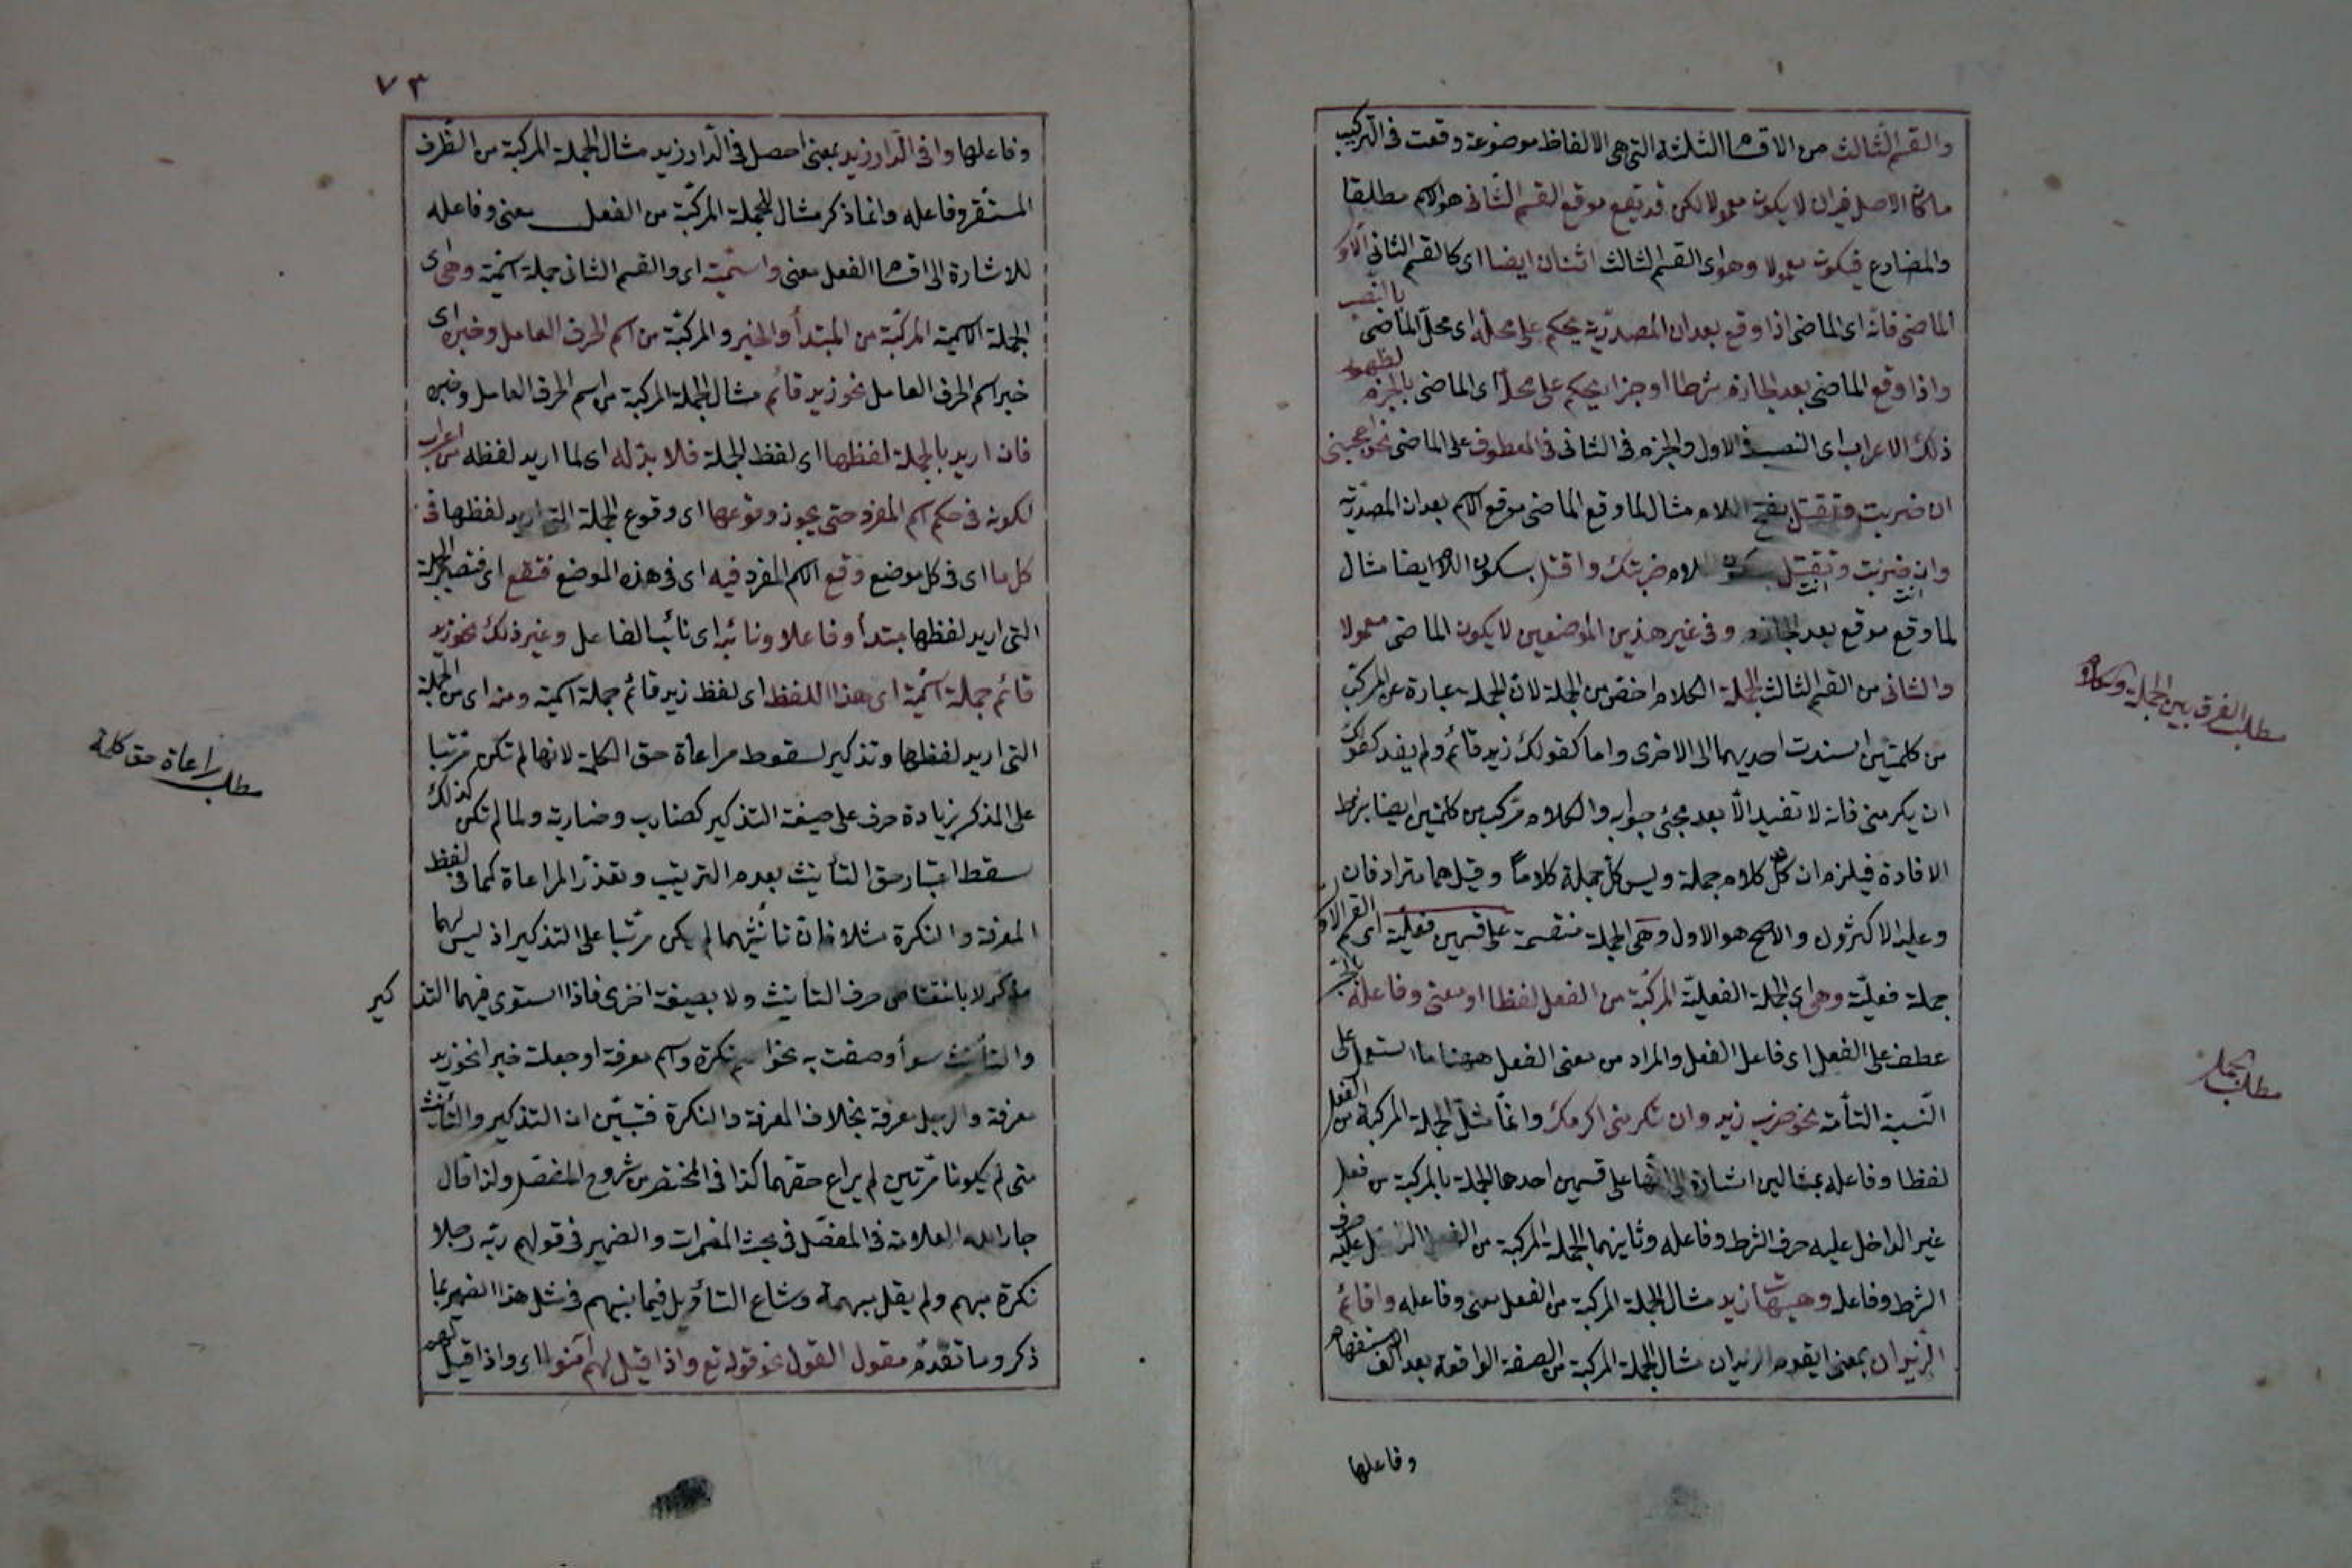 والقسم الثالث من الاقسام الثلثة التى هى الالفاظ موضوعة وقعت فى التركيب
ما كان الاصل فيه ان لا يكون معمولا لكن قد يقع موقع القسم الثانى هو الاسم مطلقا
والمضارع فيكون معمولا وهو اى القسم الثالث اثنان ايضا اى كالقسم الثانى الاول
الماضى فانه اى الماضى اذا وقع بعد ان المصدرية يحكم على محله اى محل الماضى بالنصب
واذا وقع الماضى بعد الجازم شرطا او جزاء يحكم على محله اى الماضى بالجزم لظهور
ذلك الاعراب اى النصب فى الاول والجزم فى الثانى فى المعطوف على الماضى نحو اعجبنى
ان ضربت وتقتل بفتح اللام مثال لما وقع الماضى موقع الاسم بعد ان المصدرية
وان ضربت وتقتل بسكون اللام ضربتك واقتل بسكون اللام ايضا مثال
انت انت
لما وقع موقع بعد الجازم وفى غير هذين الموضعين لا يكون الماضى معمولا
والثانى من القسم الثالث الجملة الكلام اخص من الجملة لان الجملة عبارة عن المركب
من كلمتين اسندت احديهما الى الاخرى واما كقولك زيد قائم ولم يفد كقولك
ان يكرمنى فانه لا تفيد الا بعد مجئ جوابه والكلام مركب من كلمتين ايضا بشرط
الافادة فيلزم ان كل كلام جملة وليس كل جملة كلاما وقيل هما مترادفان
وعليه الاكثرون والاصح هو الاول وهى الجملة منقسمة على قسمين فعلية اى القسم الاول
جملة فعلية وهى اى الجملة الفعلية المركبة من الفعل لفظا او معنى وفاعله
عطف على الفعل اى فاعل الفعل والمراد من معنى الفعل ههنا ما استعمل على
النسبة التامة نحو ضرب زيد وان تكرمنى اكرمك وانما مثل الجملة المركبة من الفعل
لفظا وفاعله بمثالين اشارة الى انها على قسمين احدها الجملة بالمركبة من فعل
غير الداخل عليه حرف الشرط وفاعله وثانيهما الجملة المركبة من الفعل الداخل عليه حرف
الشرط وفاعله وهيهات زيد مثال الجملة المركبة من الفعل معنى وفاعله واقائم
الزيدان بمعنى ايقوم الزيدان مثال الجملة المركبة من الصفة الواقعة بعد الف الاستفهام
وفاعلها
مطلب الفرق بين الجملة وكلام
مطلب الجملة
٧٣
وفاعلها وافى الدار زيد بمعنى احصل فى الدار زيد مثال الجملة المركبة من الظرف
المستقر وفاعله وانما ذكر مثال للجملة المركبة من الفعل معنى وفاعله
للاشارة الى اقسام الفعل معنى واسمية اى والقسم الثانى جملة اسمية وهى اى
الجملة الاسمية المركبة من المبتدأ والخبر والمركبة من اسم الحرف العامل وخبره اى
خبر اسم الحرف العامل نحو زيد قائم مثال الجملة المركبة من اسم الحرف العامل وخبره
فان اريد بالجملة لفظها اى لفظ الجملة فلا بد له اى لما اريد لفظه من اعراب
لكونه فى حكم اسم المفرد حتى يجوز وقوعها اى وقوع الجملة التى اريد لفظها فى
كل ما اى فى كل موضع وقع الاسم المفرد فيه اى فى هذه الموضع فتقع اى فتصير الجملة
التى اريد لفظها مبتدأ وفاعلا ونائبه اى نائب الفاعل وغير ذلك نحو زيد
قائم جملة اسمية اى هذا اللفظ اى لفظ زيد قائم جملة اسمية ومنه اى من الجملة
التى اريد لفظها وتذكير لسقوط مراعاة حق الكلمة لانها لم تكن مرتبا
على المذكر بزيادة حرف على صيغة التذكير كضارب وضاربة ولما لم تكن كذلك
سقط اعتبار حق التأنيث بعدم الترتيب وتعذر المراعاة كما فى لفظ
المعرفة والنكرة مثلا فان تأنيثهما لم يكن مرتبا على التذكير اذ ليس لهما
مذكر لا بانتقاص حرف التأنيث ولا بصيغة اخرى فاذا استوى فيهما التذكير
والتأنيث سوأ وصفت به نحو اسم نكرة واسم معرفة او جعلت خبرا نحو زيد
معرفة والرجل معرفة بخلاف المعرفة والنكرة فتبين ان التذكير والتأنيث
متى لم يكونا مرتبين لم يراع حقهما كذا فى المختصر من شروح المفصل ولذا قال
جار الله العلامة فى المفصل فى بحث المضمرات والضمير فى قولهم ربه رجلا
نكرة مبهم ولم يقل مبهمة وشاع التأويل فيما بينهم فى مثل هذا الضمير بما
ذكر وما تقدم مقول القول نحو قوله تع واذا قيل لهم آمنوا اى واذا قيل لهم
مطلب مراعاة حق كلمة